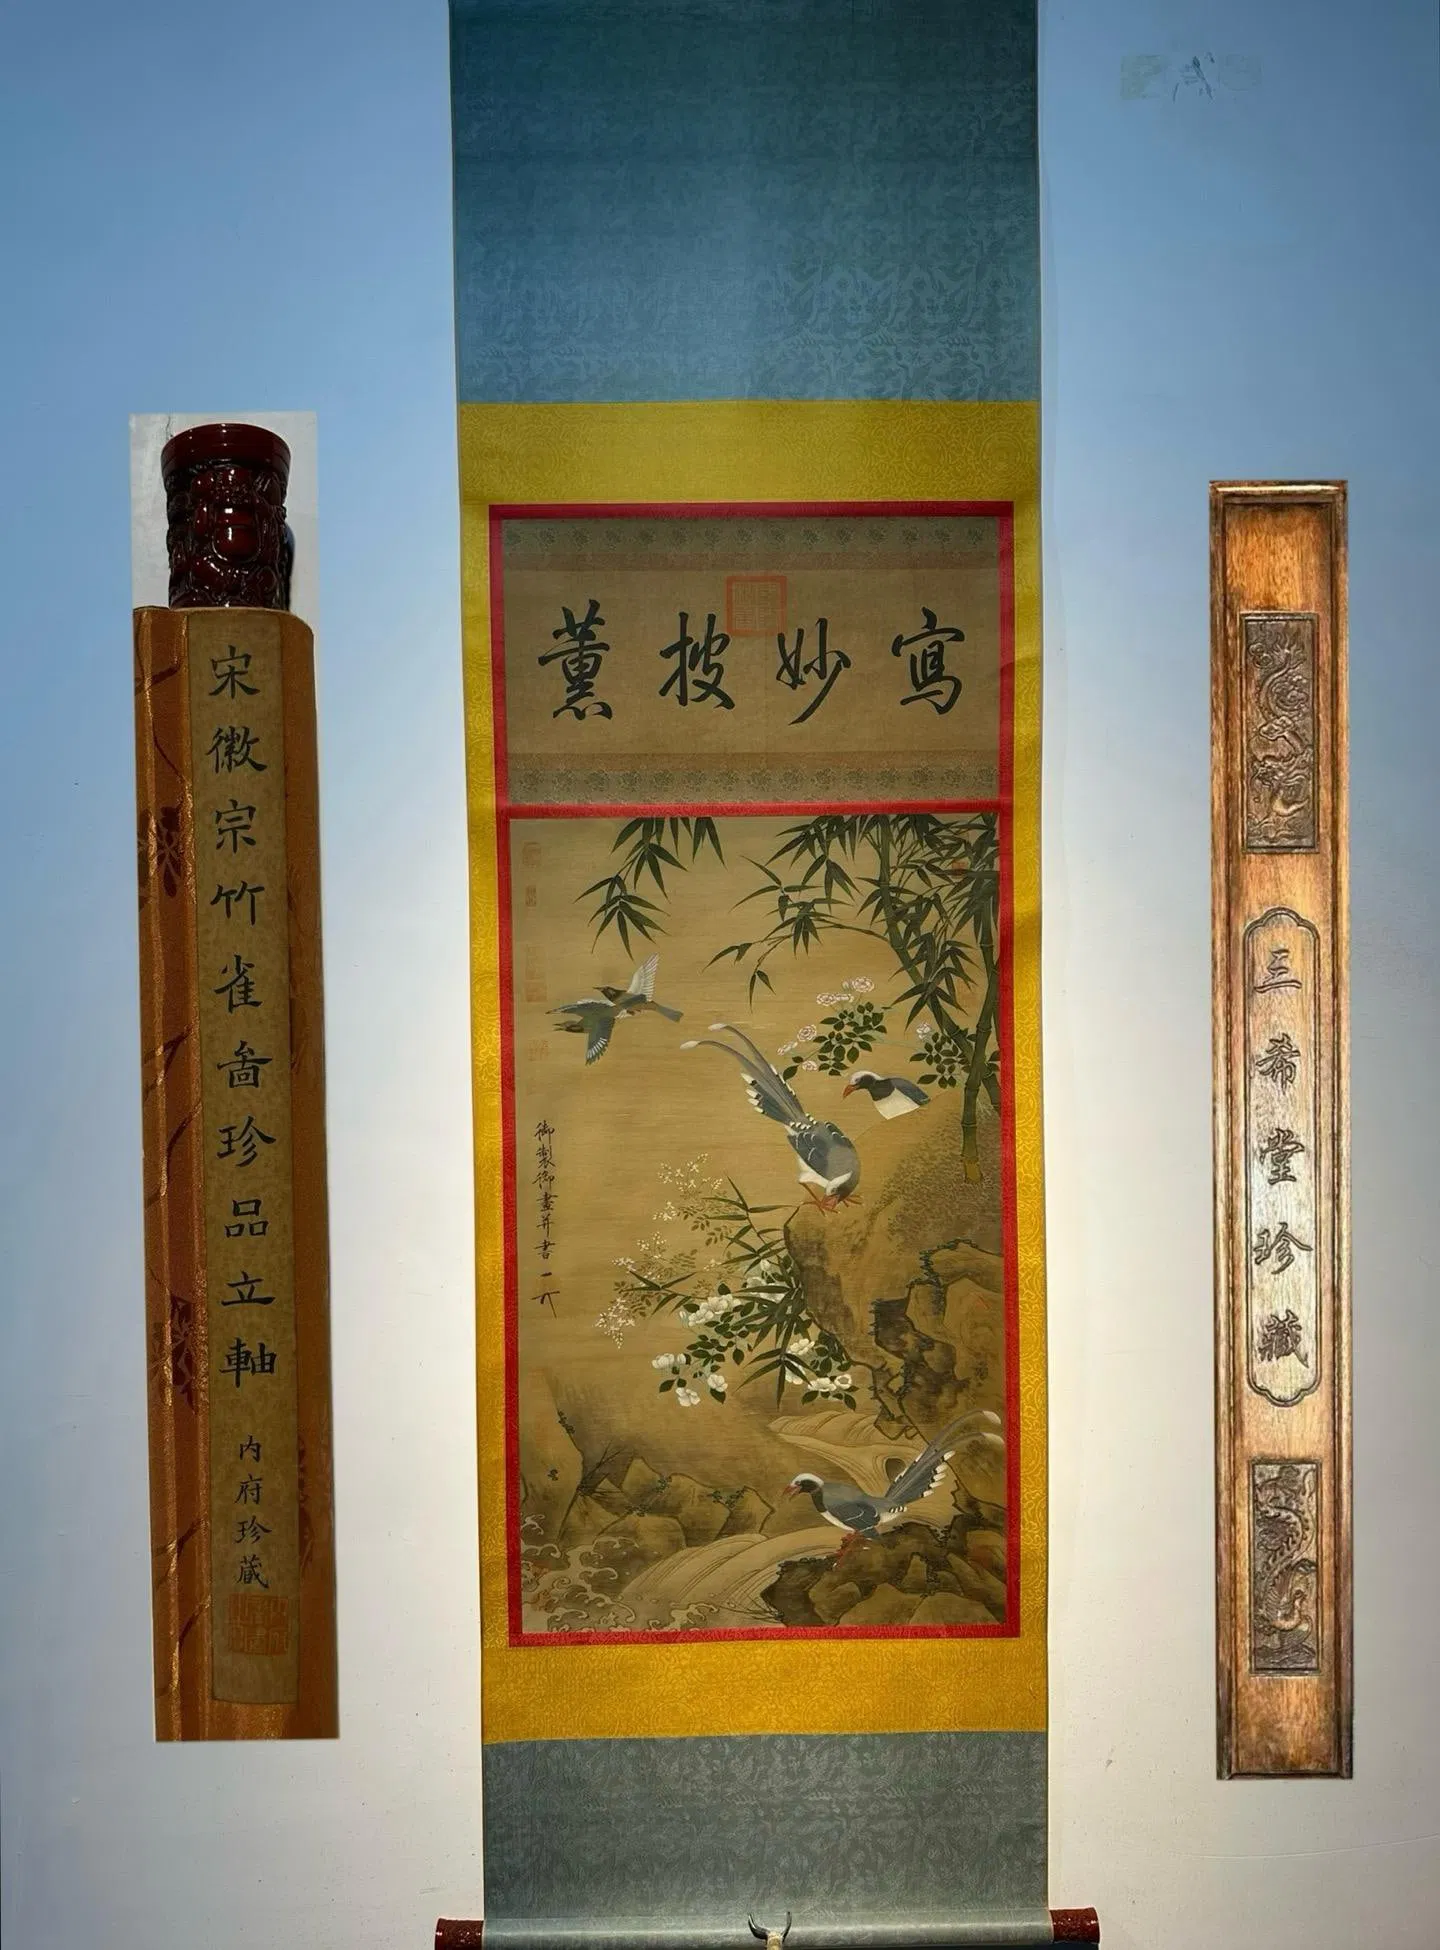 寫妙披薰
宋徽宗竹雀啚珍品立軸
内府珍蔵
御製御畫并書
三希堂珍藏